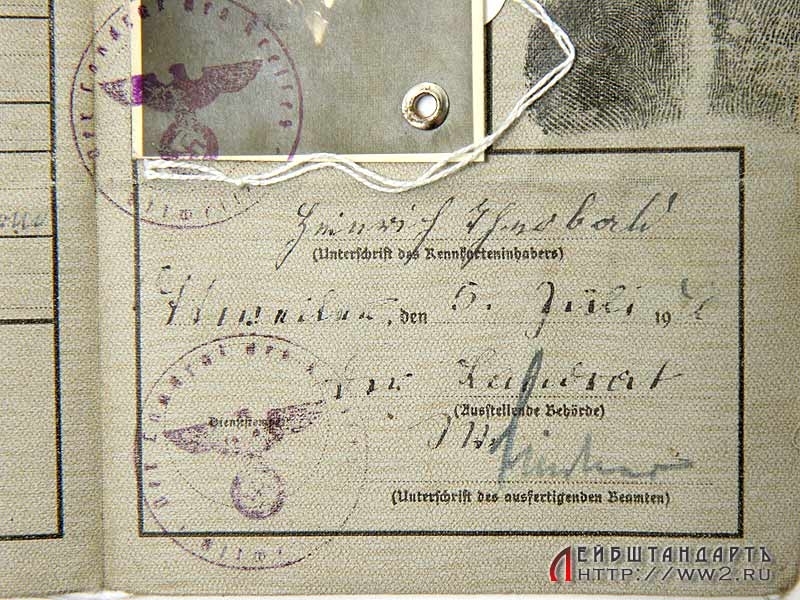 Der Landrat des Kreises
Heinrich Theobald
(Unterschrift des Kennkarteninhabers)
, den 5. Juli 19
Der Landrat des
Der Landrat
(Ausstellende Behörde)
Dienststempel
(Unterschrift des ausfertigenden Beamten)
ЛЕЙБШТАНДАРТЪ
HTTP://WW2.RU